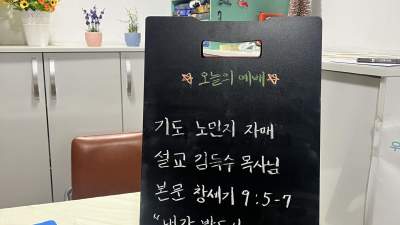 오늘의 예배
기도 노민지 자매
설교 김득수 목사님
본문 창세기 9:5-7
"내가 반드시